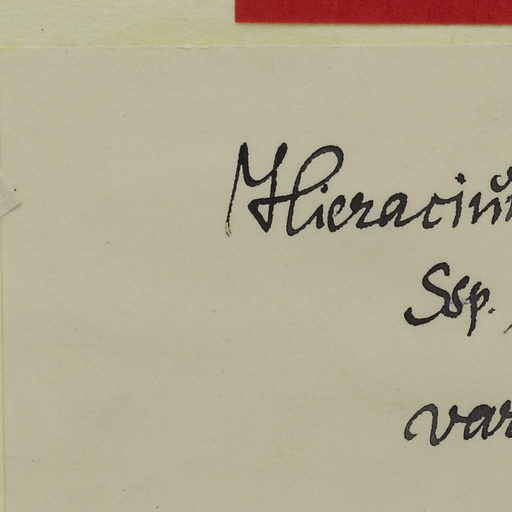 Hieraciŭm
Ssp.
var